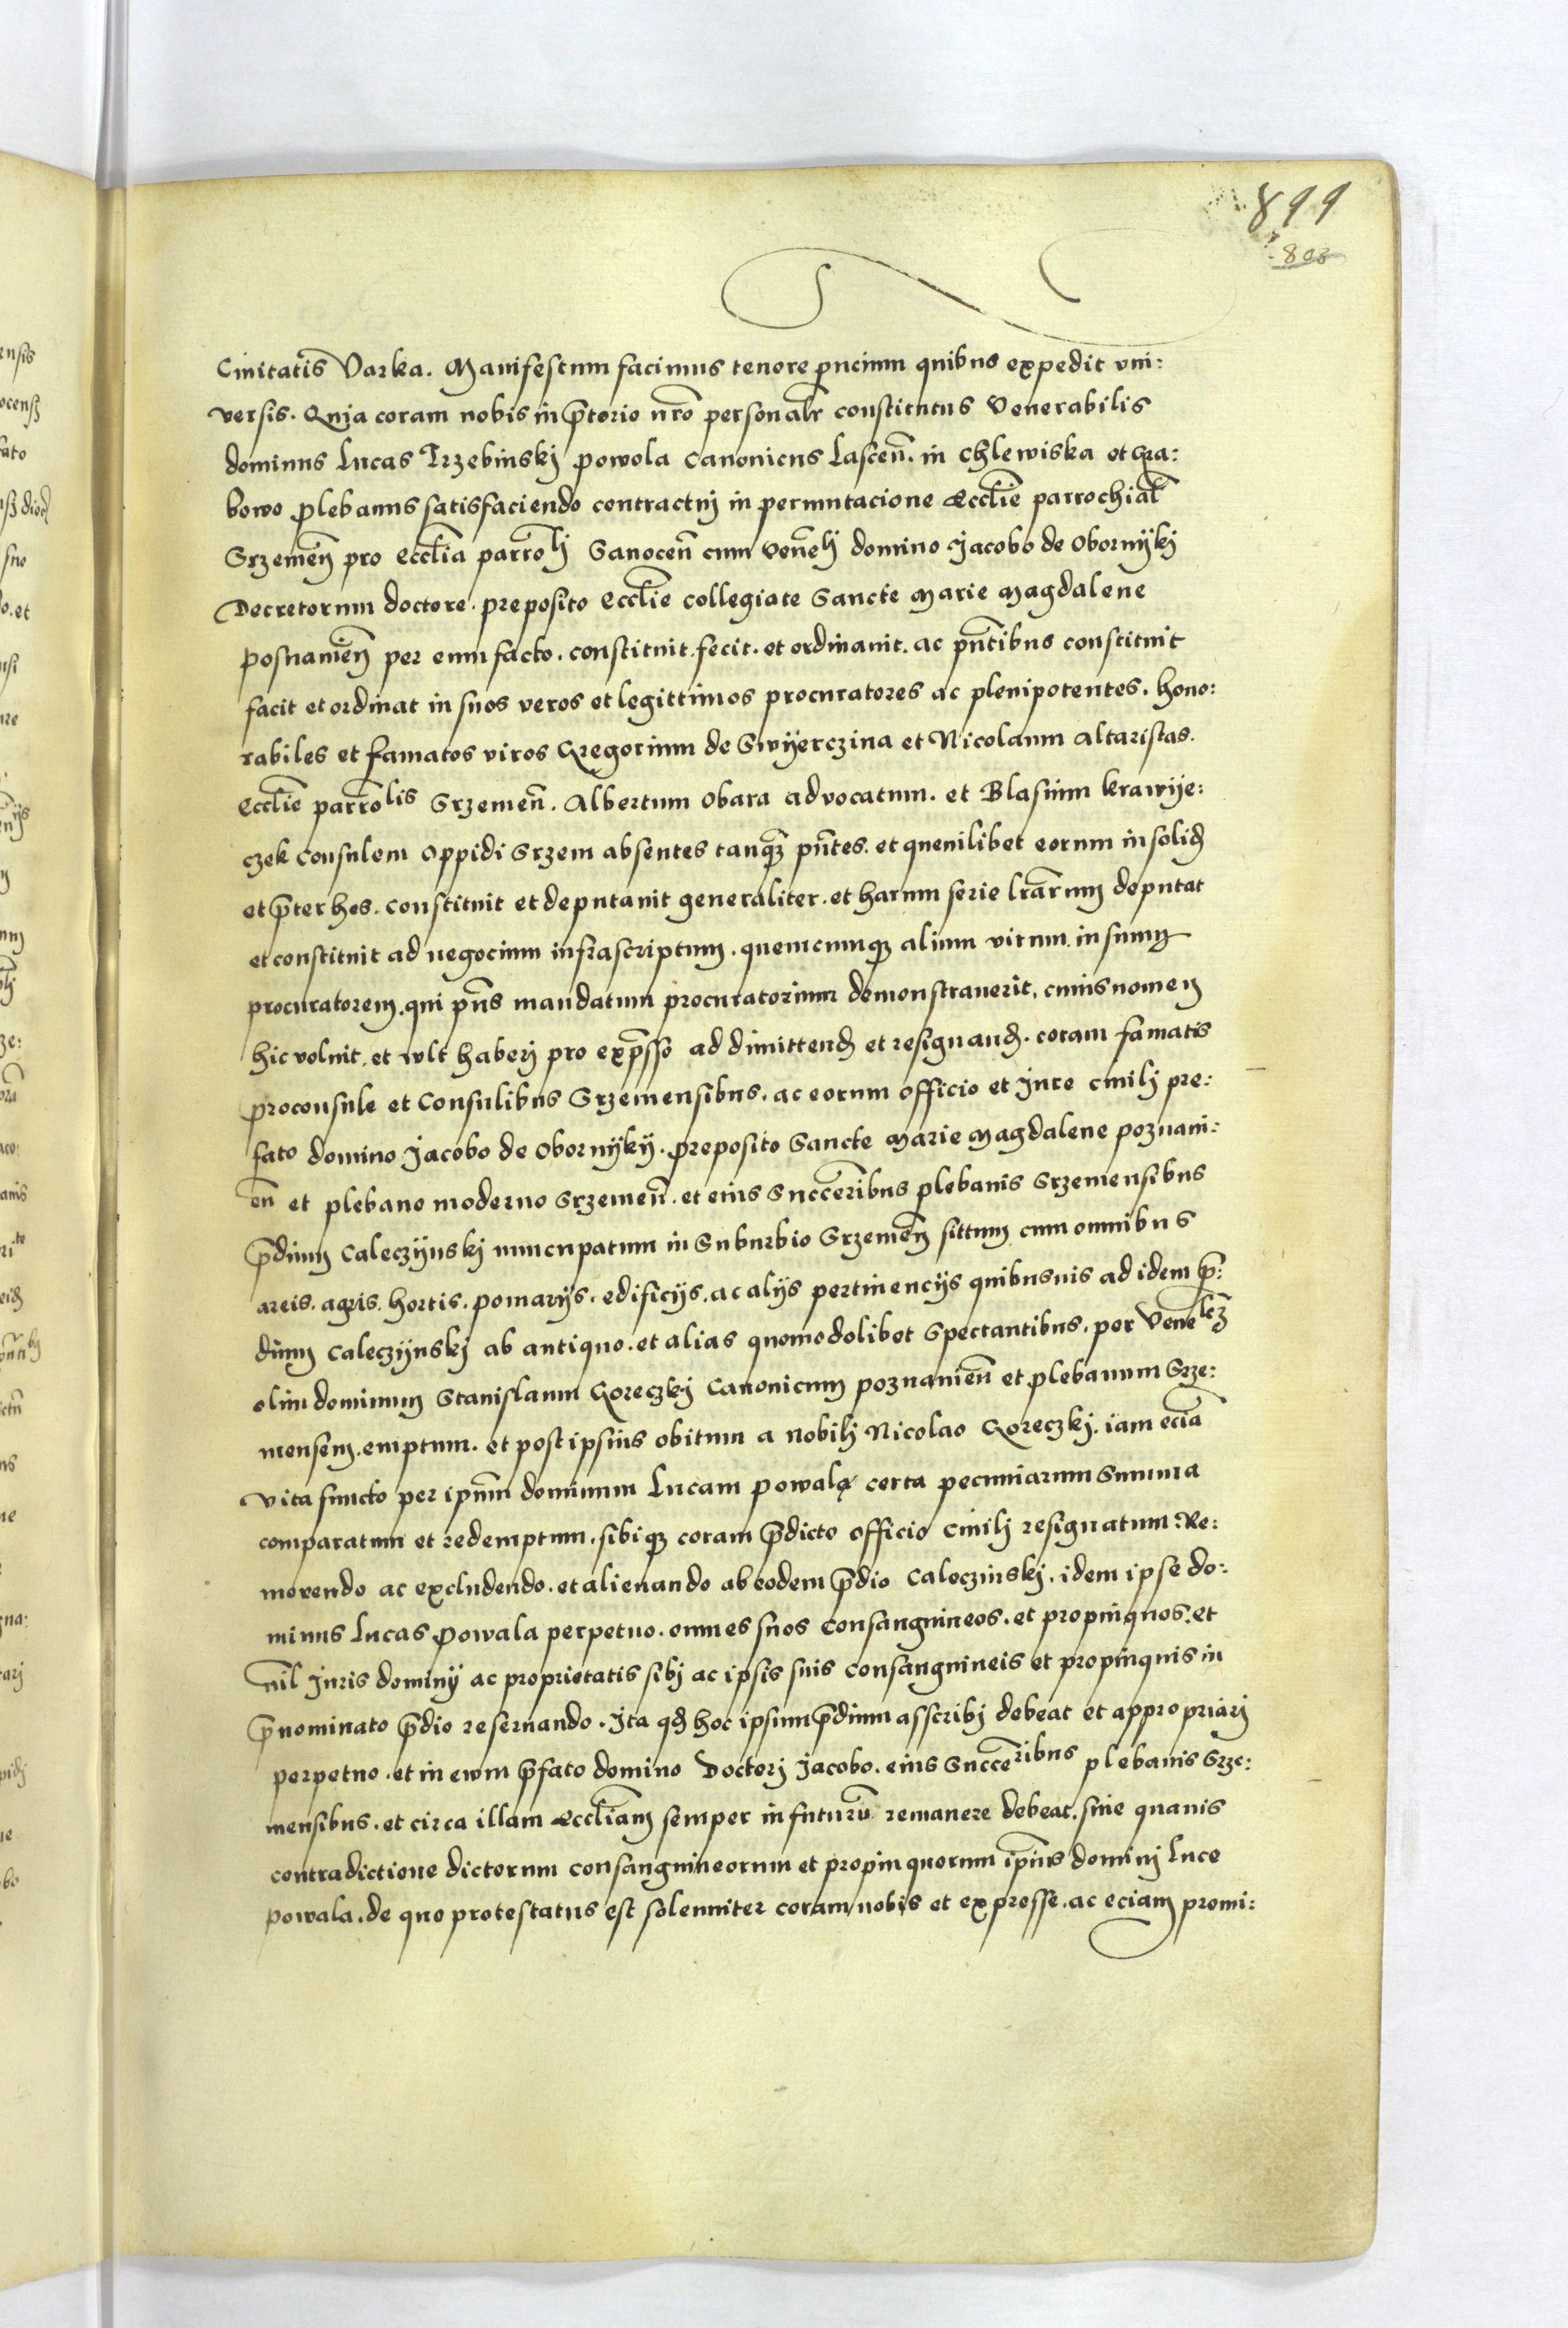 899
803
Ciuitatis Varka. Manifestum facimus tenore pñcium quibus expedit vni:
versis. Quia coram nobis in p̄torio nr̄o personalr̄ constitutus Venerabilis
dominus Lucas Trzebinskj powola Canonicus Lascen̄. in Chlewiska et Gra:
bowo plebanus satisfaciendo contractuj in permutacione Eccl̄ie parrochial̄
Srzemen̄ pro eccl̄ia parro̅lj Sanocen̄ cum ven̄elj domino Jacobo de Obornÿkj
Decretorum doctore. preposito Eccl̄ie collegiate Sancte Marie Magdalene
posnanien̄ per eum facto. constituit. fecit. et ordinauit. ac pn̄tibus constituit
facit et ordinat in suos veros et legittimos procuratores ac plenipotentes. hono:
rabiles et famatos viros Gregorium de Swÿerczina et Nicolaum altaristas.
Eccl̄ie parro̅lis Srzemen̄. Albertum Obara advocatum. et Blasium krawÿe:
czek Consulem oppidi Srzem absentes tanqꝫ pn̄tes. et quemlibet eorum insolid̄
et p̄ter hos. constituit et deputauit generaliter. et harum serie lr̄arum deputat
et constituit ad negocium infrascriptum. quemcumqꝫ alium virum. in suum
procuratorem. qui pn̄s mandatum procuratorium demonstrauerit. cuius nomen
hic voluit. et vult haberj pro exp̄sso ad dimittend̄ et resignand̄. coram famatis
proconsule et Consulibus Srzemensibus. ac eorum officio et Jure ciuilj pre:
fato domino Jacobo de Obornÿkÿ. preposito Sancte Marie Magdalene poznani:
en̄ et plebano moderno Srzemen̄. et eius Succe̅ribus plebanis Srzemensibus
p̄dium Caleczÿnskj nuncupatum in Suburbio Srzemen̄ sittum cum omnibus
areis. agris. hortis. pomarÿs. edificÿs. ac alÿs pertinencÿs quibusuis ad idem p̄:
dium Caleczÿnskj ab antiquo. et alias quomodolibet spectantibus. per Vene̅leꝫ
olim dominum Stanislaum Goreczkj Canonicum poznanien̄ et plebanum Srze:
mensem. emptum. et post ipsius obitum a nobilj Nicolao Goreczkj. iam ecia̅
vita functo per ipn̄m dominum Lucam powalę certa pecuniarum summa
comparatum et redemptum. sibiqꝫ coram p̄dicto officio ciuilj resignatum. Re:
mouendo ac excludendo. et alienando ab eodem p̄dio Caleczinskj. idem ipse do:
minus Lucas powala perpetuo. omnes suos consanguineos. et propinquos. et
nil Juris dominÿ ac proprietatis sibj ac ipsis suis consanguineis et propinquis in
p̄nominato p̄dio reseruando. Ita qd̄ hoc ipsum p̄dium asscribj debeat et appropriarj
perpetuo. et in ewm p̄fato domino Doctorj Jacobo. eius Succe̅ribus plebanis Srze:
mensibus. et circa illam Eccl̄iam semper in futuru̅ remanere debeat. sine quauis
contradictione dictorum consanguineorum et propinquorum ipn̄s dominj Luce
powala. de quo protestatus est solenniter coram nobis et expresse. ac eciam promi: